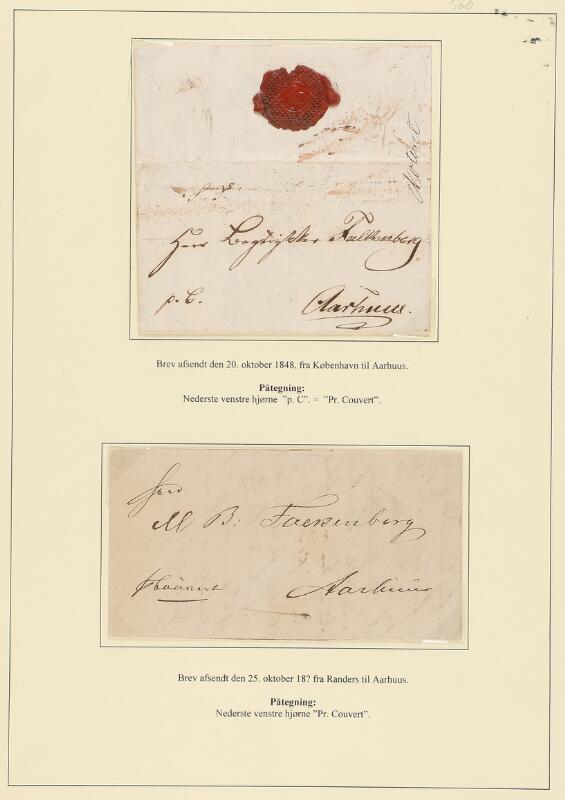 560
Herr Bogtrykker Falkenberg
p. C.
Aarhuus.
Brev afsendt den 20. oktober 1848, fra København til Aarhuus.
Påtegning:
Nederste venstre hjørne "p. C". = "Pr. Couvert".
Herr
M B: Falkenberg
Aarhuus
Brev afsendt den 25. oktober 18? fra Randers til Aarhuus.
Påtegning:
Nederste venstre hjørne "Pr. Couvert".